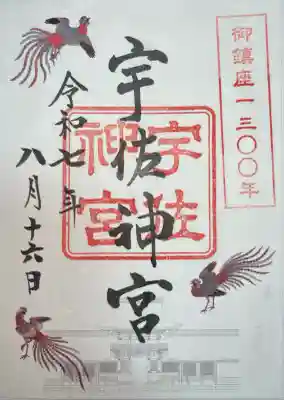 御鎮座一三〇〇年
宇佐神宮
宇佐
神宮
令和七年
八月十六日